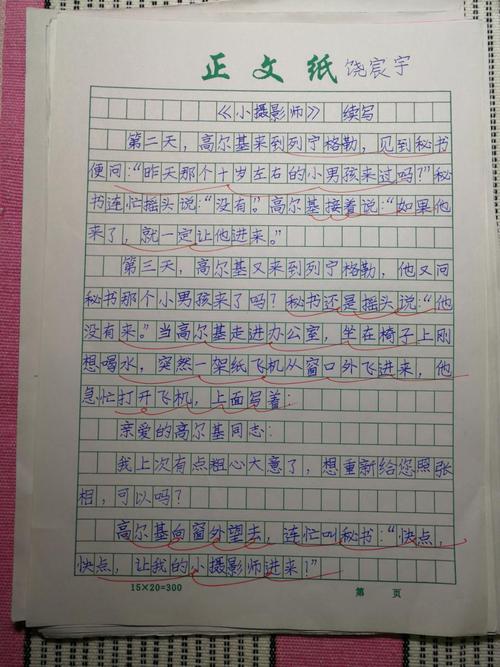 正文纸 饶宸宇
《小摄影师》 续写
第二天，高尔基来到列宁格勒，见到秘书
便问：“昨天那个十岁左右的小男孩来过吗？”秘
书连忙摇头说：“没有。”高尔基接着说：“如果他
来了，就一定让他进来。”
第三天，高尔基又来到列宁格勒，他又问
秘书那个小男孩来了吗？秘书还是摇头说：“他
没有来。”当高尔基走进办公室，坐在椅子上刚
想喝水，突然一架纸飞机从窗口外飞进来，他
急忙打开飞机，上面写着：
亲爱的高尔基同志：
我上次有点粗心大意了，想重新给您照张
相，可以吗？
高尔基向窗外望去，连忙叫秘书：“快点，
快点，让我的小摄影师进来！”
15×20=300 第 页